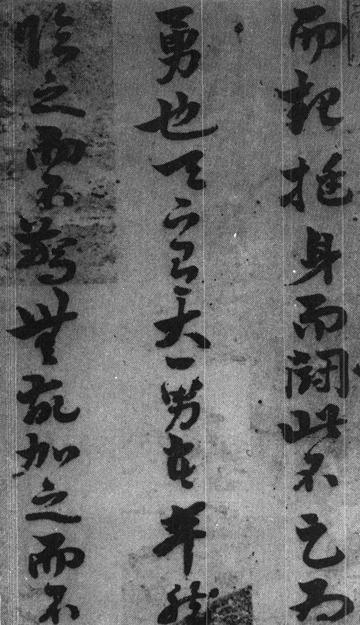 而起挺身而闘此不足為
勇也天下有大勇者卒然
臨之而不驚無故加之而不